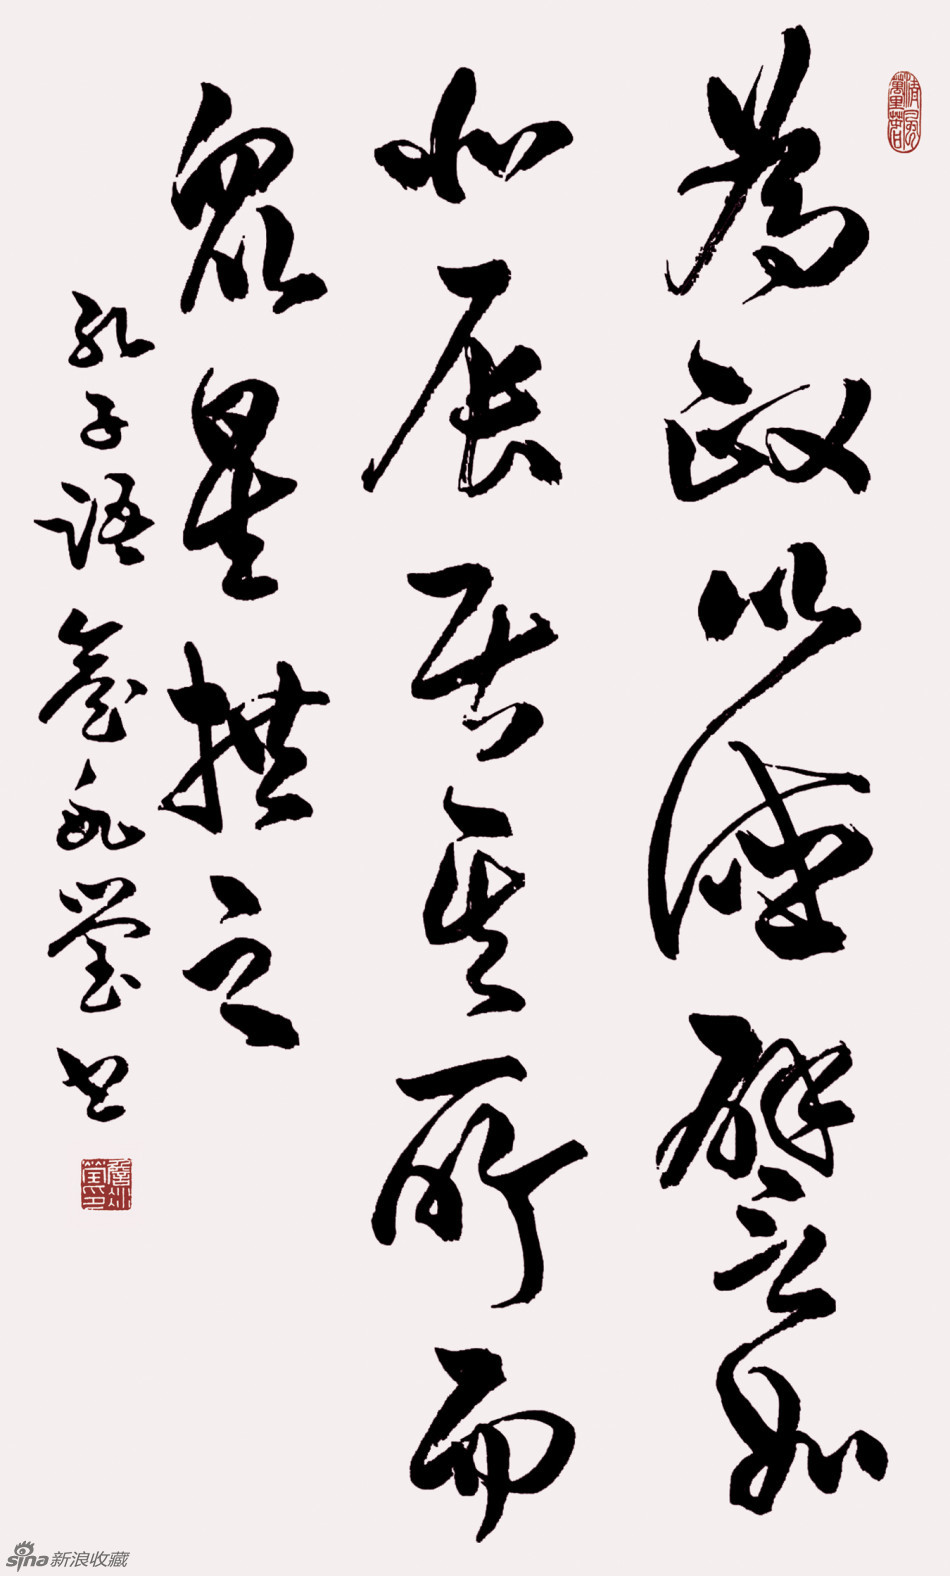 為政以德譬如
北辰居其所而
眾星拱之
孔子語
sina新浪收藏